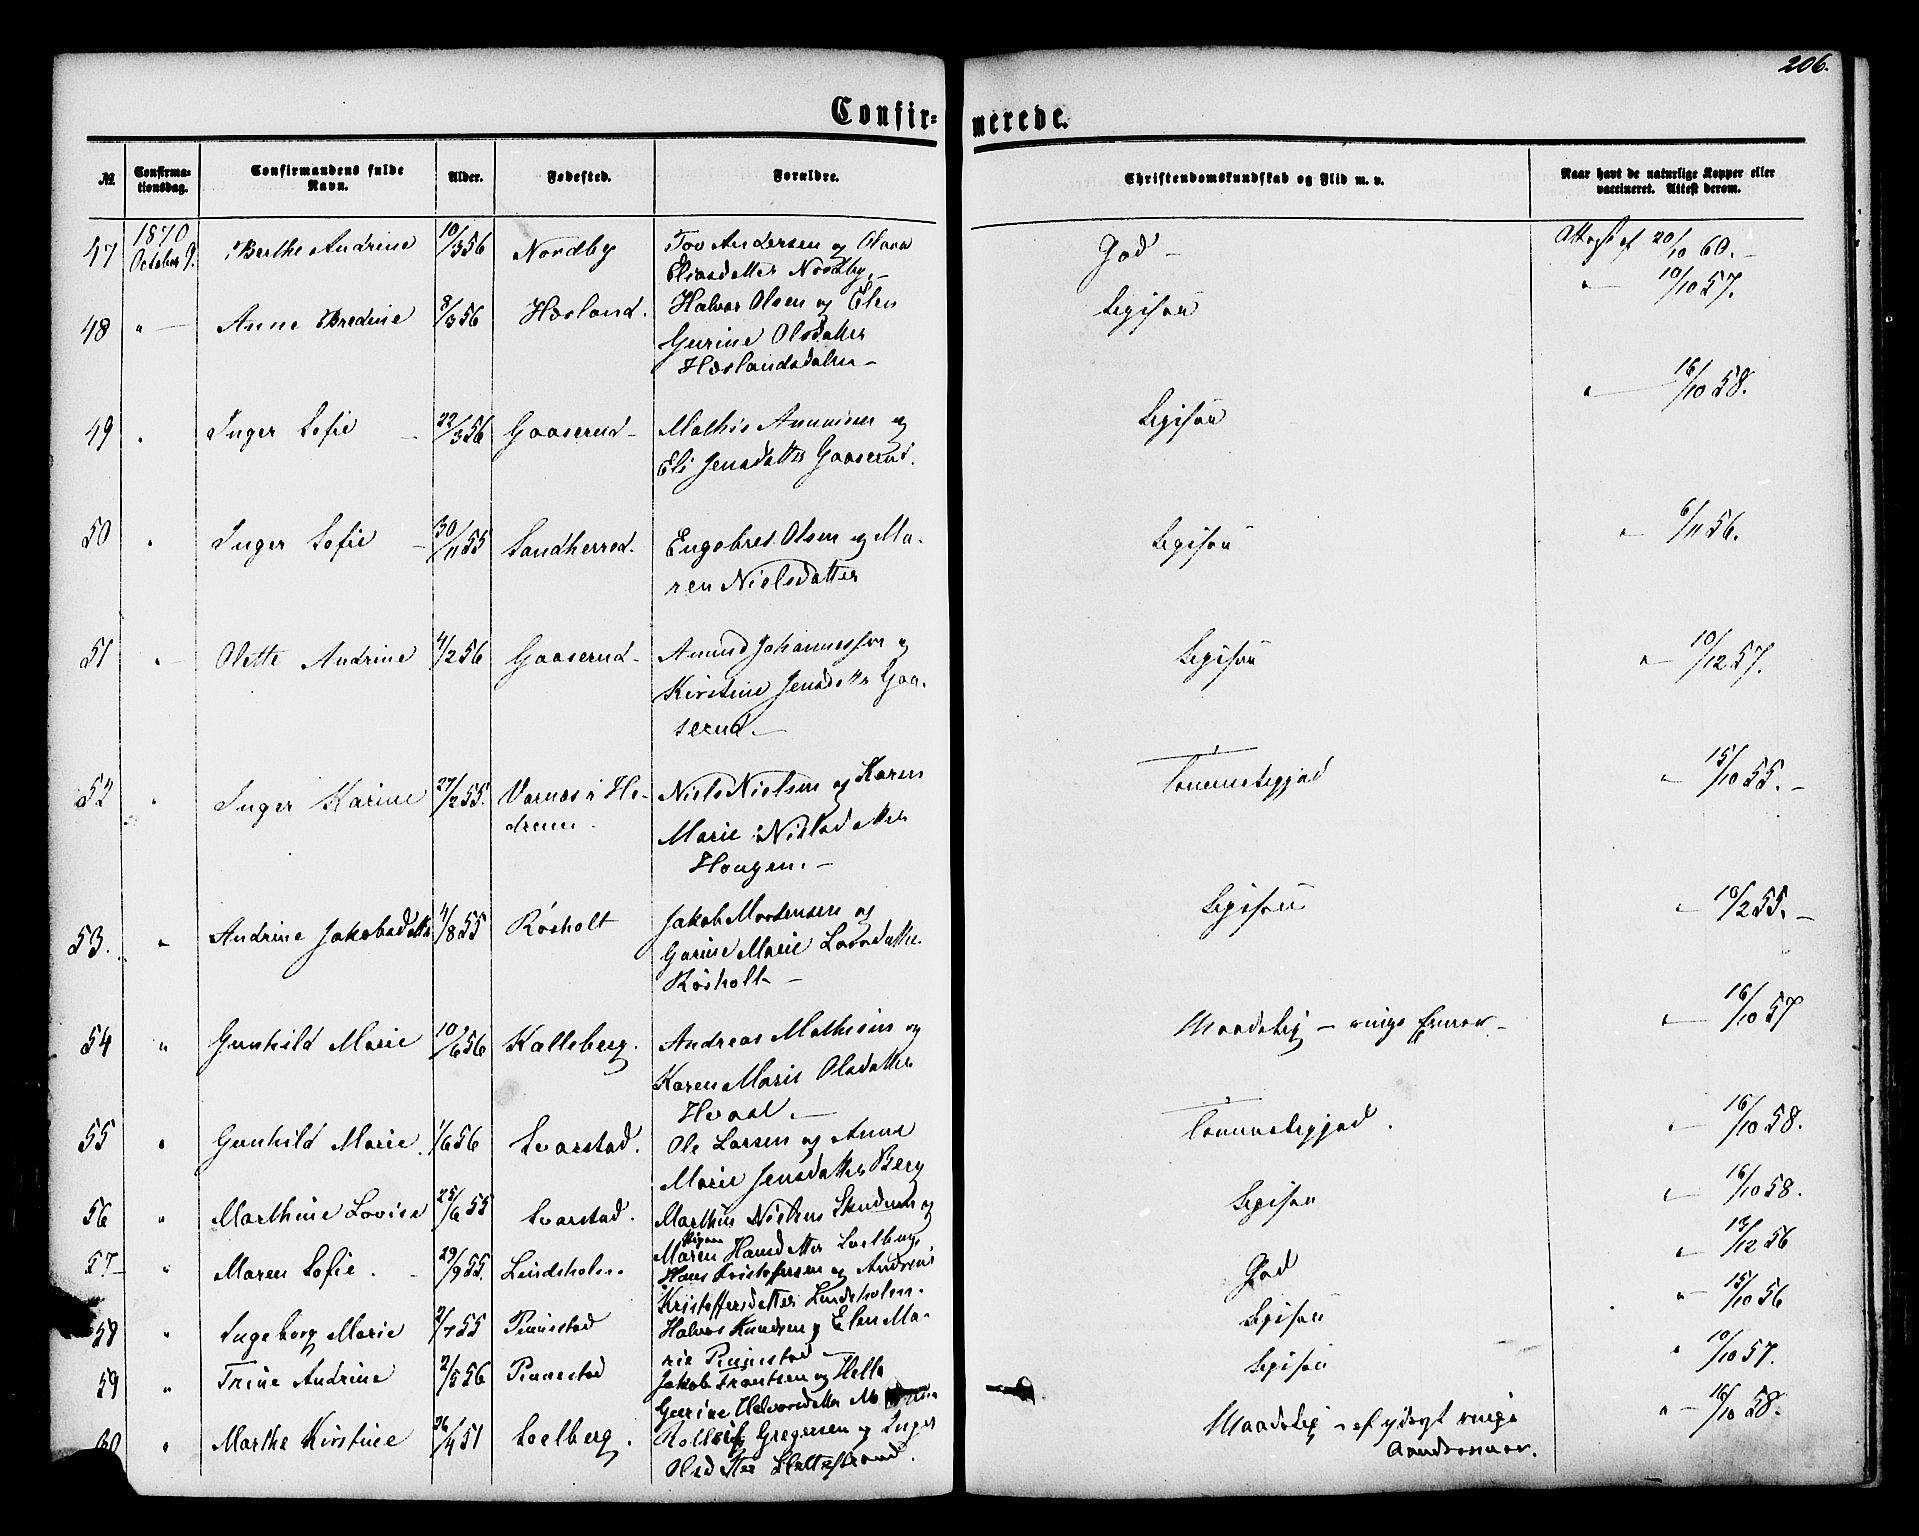 206.
Confir- merede.
№ Confirma- Confirmandens fulde Alder. Fødested. Forældre. Christendomskundskab og Flid m. v. Naar havt de naturlige Kopper eller
tionsdag. Navn. vaccineret. Attest derom.
47 1870 October 9. Berthe Andrine 10/3 56 Nordby Tov Andersen og Olava God - Attest af 20/10 60. -
Eliasdatter Nordby. -
48 " - Anne Bredine 8/3 56 Hæsland. Halvor Olsen og Elen Ligesaa " - 10/10 57.
Gurine Olsdatter
Hæslandsdalen -
49 " Inger Sofie - 22/3 56 Gaaserud - Mathis Amunsen og Ligesaa " - 16/10 58.
Eli Jensdatter Gaaserud.
50 " Inger Sofie - 30/11 55 Sandherred. Engebret Olsen og Ma- Ligesaa " - 6/11 56.
ren Nielsdatter
51 " Olette Andrine 4/2 56 Gaaserud - Amund Johannessen og Ligesaa " - 10/12 57.
Kirstine Jensdatter Gaa-
serud. -
52 " Inger Karine 27/2 55. Varnæs i He- Niels Nielsen og Karen Temmeliggod " - 15/10 55. -
drum. Marie Nielsdatter
Haugen. -
53. " Andrine Jakobsdatter 4/8 55 Røsholt Jakob Mortensen og Ligesaa " - 10/2 55. -
Gurine Marie Larsdatter
Røsholt -
54 " Gunhild Marie 10/6 56 Kalleberg. Andreas Mathisen og Maadelig - ringe Evner - " - 16/10 57
Karen Marie Olsdatter
Hvaal. -
55 " Gunhild Marie. 1/6 56 Svarstad. Ole Larsen og Anne Temmeliggod. " - 16/10 58.
Marie Jensdatter Berg
56 " Marthine Lovise 25/6 55 Svarstad. Marthin Nielsen og Ligesaa " - 16/10 58.
Maren Hansdatter Soelberg
57 - " Maren Sofie. - 29/9 55. Lindsholm. Hans Kristofersen og Andrine God " - 13/12 56
Kristoffersdatter Lindsholm.
58 " Ingeborg Marie 2/7 55 Rinnestad Halvor Knudsen og Elen Ma- Ligesaa " - 15/10 56
rie Rinnestad -
59 " Trine Andrine 2/5 56 Rinnestad Jakob Frantsen og Helle Ligesaa " 10/10 57.
Gurine Halvorsdatter
60 " Marthe Kirstine 26/4 51 Soelberg. Rollef Gregersen og Inger Maadelig - af yderst ringe " - 16/10 58.
Olsdatter Aandsevner.